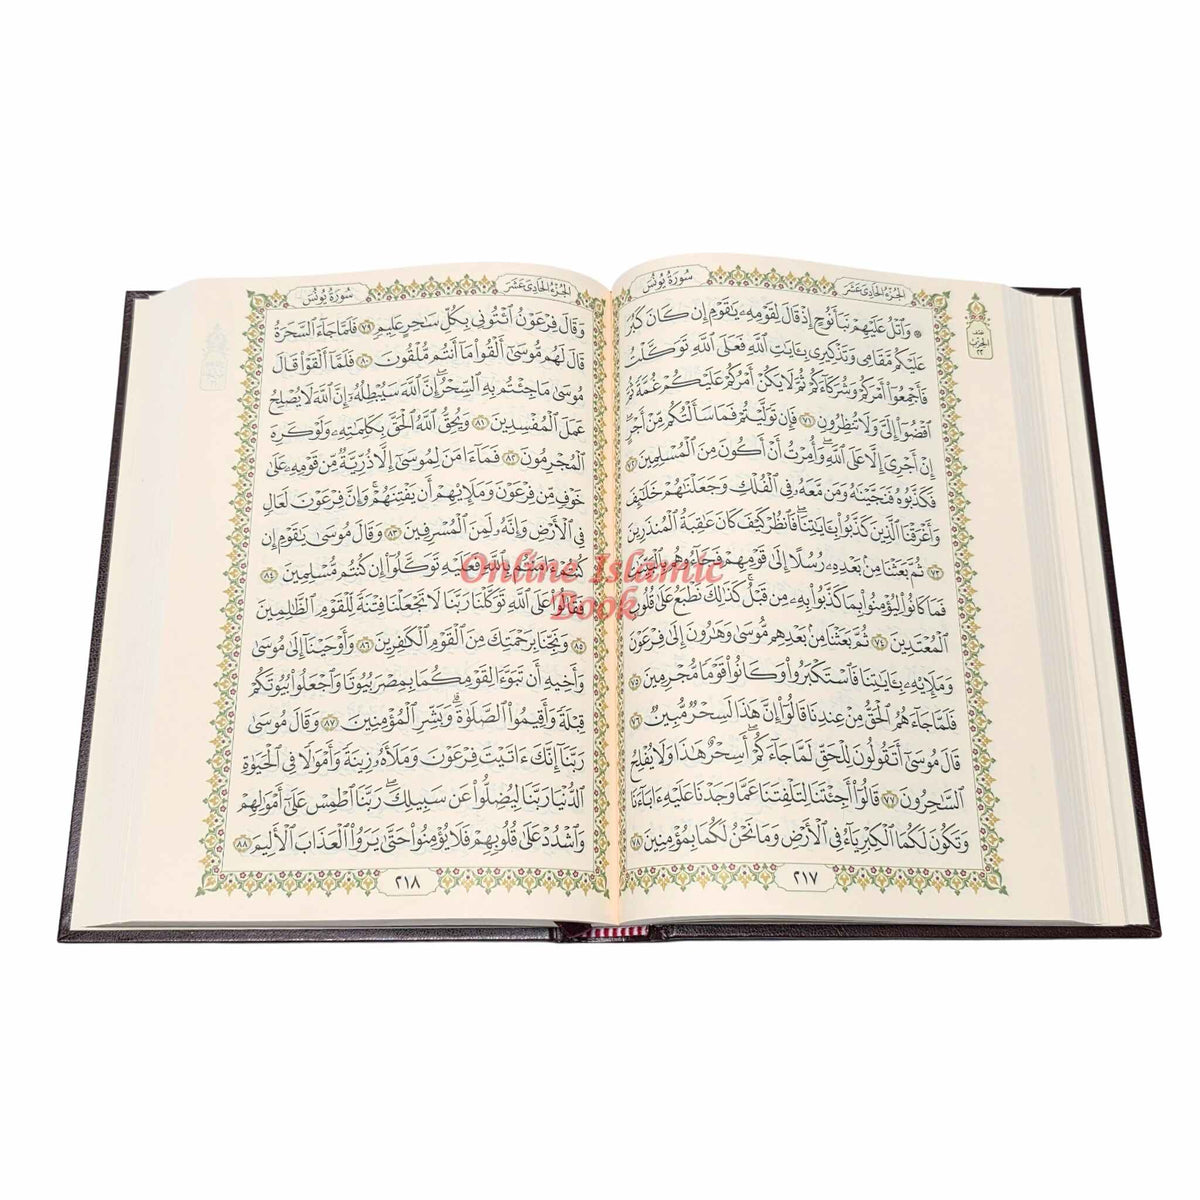 الجزء الحادي عشر
سورة يونس
نصف
الحزب
٢٢
۞ وَٱتۡلُ عَلَيۡهِمۡ نَبَأَ نُوحٍ إِذۡ قَالَ لِقَوۡمِهِۦ يَٰقَوۡمِ إِن كَانَ كَبُرَ
عَلَيۡكُم مَّقَامِي وَتَذۡكِيرِي بِـَٔايَٰتِ ٱللَّهِ فَعَلَى ٱللَّهِ تَوَكَّلۡتُ
فَأَجۡمِعُوٓاْ أَمۡرَكُمۡ وَشُرَكَآءَكُمۡ ثُمَّ لَا يَكُنۡ أَمۡرُكُمۡ عَلَيۡكُمۡ غُمَّةٗ ثُمَّ
ٱقۡضُوٓاْ إِلَيَّ وَلَا تُنظِرُونِ ٧١ فَإِن تَوَلَّيۡتُمۡ فَمَا سَأَلۡتُكُم مِّنۡ أَجۡرٍۖ
إِنۡ أَجۡرِيَ إِلَّا عَلَى ٱللَّهِۖ وَأُمِرۡتُ أَنۡ أَكُونَ مِنَ ٱلۡمُسۡلِمِينَ ٧٢
فَكَذَّبُوهُ فَنَجَّيۡنَٰهُ وَمَن مَّعَهُۥ فِي ٱلۡفُلۡكِ وَجَعَلۡنَٰهُمۡ خَلَٰٓئِفَ
وَأَغۡرَقۡنَا ٱلَّذِينَ كَذَّبُواْ بِـَٔايَٰتِنَاۖ فَٱنظُرۡ كَيۡفَ كَانَ عَٰقِبَةُ ٱلۡمُنذَرِينَ
٧٣ ثُمَّ بَعَثۡنَا مِنۢ بَعۡدِهِۦ رُسُلًا إِلَىٰ قَوۡمِهِمۡ فَجَآءُوهُم بِٱلۡبَيِّنَٰتِ
فَمَا كَانُواْ لِيُؤۡمِنُواْ بِمَا كَذَّبُواْ بِهِۦ مِن قَبۡلُۚ كَذَٰلِكَ نَطۡبَعُ عَلَىٰ قُلُوبِ
ٱلۡمُعۡتَدِينَ ٧٤ ثُمَّ بَعَثۡنَا مِنۢ بَعۡدِهِم مُّوسَىٰ وَهَٰرُونَ إِلَىٰ فِرۡعَوۡنَ
وَمَلَإِيْهِۦ بِـَٔايَٰتِنَا فَٱسۡتَكۡبَرُواْ وَكَانُواْ قَوۡمٗا مُّجۡرِمِينَ ٧٥
فَلَمَّا جَآءَهُمُ ٱلۡحَقُّ مِنۡ عِندِنَا قَالُوٓاْ إِنَّ هَٰذَا لَسِحۡرٞ مُّبِينٞ ٧٦
قَالَ مُوسَىٰٓ أَتَقُولُونَ لِلۡحَقِّ لَمَّا جَآءَكُمۡۖ أَسِحۡرٌ هَٰذَا وَلَا يُفۡلِحُ
ٱلسَّٰحِرُونَ ٧٧ قَالُوٓاْ أَجِئۡتَنَا لِتَلۡفِتَنَا عَمَّا وَجَدۡنَا عَلَيۡهِ ءَابَآءَنَا
وَتَكُونَ لَكُمَا ٱلۡكِبۡرِيَآءُ فِي ٱلۡأَرۡضِ وَمَا نَحۡنُ لَكُمَا بِمُؤۡمِنِينَ ٧٨
٢١٧
الجزء الحادي عشر
سورة يونس
وَقَالَ فِرۡعَوۡنُ ٱئۡتُونِي بِكُلِّ سَٰحِرٍ عَلِيمٖ ٧٩ فَلَمَّا جَآءَ ٱلسَّحَرَةُ
قَالَ لَهُم مُّوسَىٰٓ أَلۡقُواْ مَآ أَنتُم مُّلۡقُونَ ٨٠ فَلَمَّآ أَلۡقَوۡاْ قَالَ
مُوسَىٰ مَا جِئۡتُم بِهِ ٱلسِّحۡرُۖ إِنَّ ٱللَّهَ سَيُبۡطِلُهُۥٓ إِنَّ ٱللَّهَ لَا يُصۡلِحُ
عَمَلَ ٱلۡمُفۡسِدِينَ ٨١ وَيُحِقُّ ٱللَّهُ ٱلۡحَقَّ بِكَلِمَٰتِهِۦ وَلَوۡ كَرِهَ
ٱلۡمُجۡرِمُونَ ٨٢ فَمَآ ءَامَنَ لِمُوسَىٰٓ إِلَّا ذُرِّيَّةٞ مِّن قَوۡمِهِۦ عَلَىٰ
خَوۡفٖ مِّن فِرۡعَوۡنَ وَمَلَإِيْهِمۡ أَن يَفۡتِنَهُمۡۚ وَإِنَّ فِرۡعَوۡنَ لَعَالٖ
فِي ٱلۡأَرۡضِ وَإِنَّهُۥ لَمِنَ ٱلۡمُسۡرِفِينَ ٨٣ وَقَالَ مُوسَىٰ يَٰقَوۡمِ إِن
كُنتُمۡ ءَامَنتُم بِٱللَّهِ فَعَلَيۡهِ تَوَكَّلُوٓاْ إِن كُنتُم مُّسۡلِمِينَ ٨٤
فَقَالُواْ عَلَى ٱللَّهِ تَوَكَّلۡنَا رَبَّنَا لَا تَجۡعَلۡنَا فِتۡنَةٗ لِّلۡقَوۡمِ ٱلظَّٰلِمِينَ
٨٥ وَنَجِّنَا بِرَحۡمَتِكَ مِنَ ٱلۡقَوۡمِ ٱلۡكَٰفِرِينَ ٨٦ وَأَوۡحَيۡنَآ إِلَىٰ مُوسَىٰ
وَأَخِيهِ أَن تَبَوَّءَا لِقَوۡمِكُمَا بِمِصۡرَ بُيُوتٗا وَٱجۡعَلُواْ بُيُوتَكُمۡ
قِبۡلَةٗ وَأَقِيمُواْ ٱلصَّلَوٰةَۗ وَبَشِّرِ ٱلۡمُؤۡمِنِينَ ٨٧ وَقَالَ مُوسَىٰ
رَبَّنَآ إِنَّكَ ءَاتَيۡتَ فِرۡعَوۡنَ وَمَلَأَهُۥ زِينَةٗ وَأَمۡوَٰلٗا فِي ٱلۡحَيَوٰةِ
ٱلدُّنۡيَا رَبَّنَا لِيُضِلُّواْ عَن سَبِيلِكَۖ رَبَّنَا ٱطۡمِسۡ عَلَىٰٓ أَمۡوَٰلِهِمۡ
وَٱشۡدُدۡ عَلَىٰ قُلُوبِهِمۡ فَلَا يُؤۡمِنُواْ حَتَّىٰ يَرَوُاْ ٱلۡعَذَابَ ٱلۡأَلِيمَ ٨٨
٢١٨
Online Islamic
Book